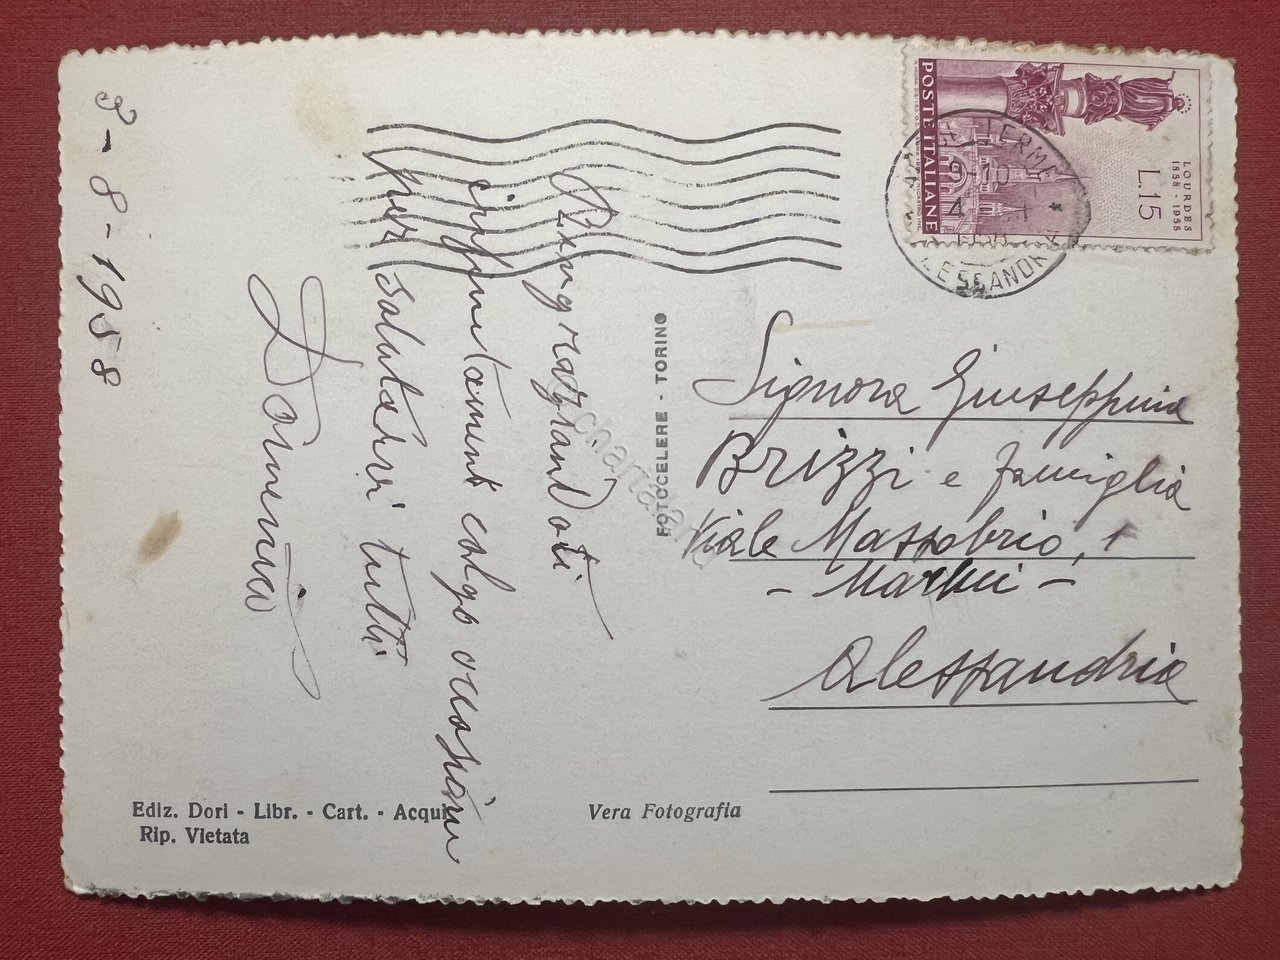 3-8-1958
RingraziandoTi
infinitamente colgo occasione
per salutarvi tutti
Domenico
POSTE ITALIANE
LOURDES
1858-1958
L.15
TERME
9-10
4
1958
ALESSANDRIA
FOTOCELERE - TORINO
Signora Giuseppina
Brizzi e famiglia
Viale Massobrio, 1
Alessandria
Ediz. Dori - Libr. - Cart. - Acqui
Rip. Vietata
Vera Fotografia